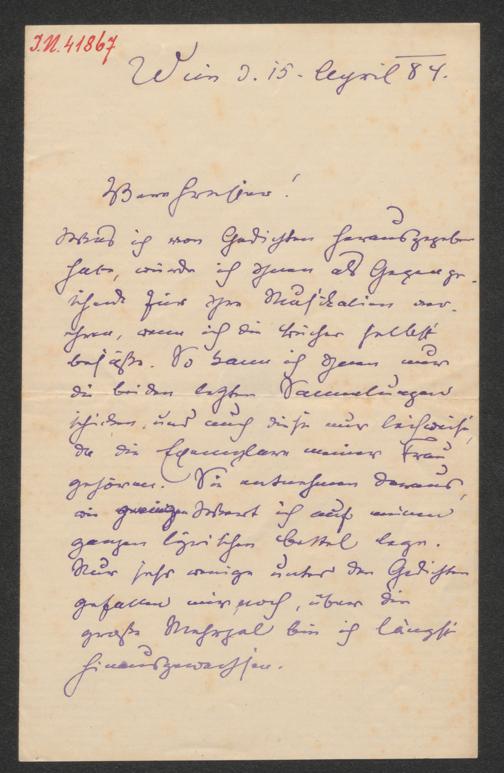 I.N. 41867
Wien d. 15. April 84.
Verehrester!
Was ich von Gedichten herausgegeben
habe, würde ich Ihnen als Gegenge-
schenk für Ihre Musikalien ver-
ehren, wenn ich die Bücher selbst
besäße. So kann ich Ihnen nur
die beiden letzten Sammlungen
schicken, und auch diese nur leihweise,
da die Exemplare meiner Frau
gehören. Sie entnehmen daraus,
wie geringen Wert ich auf meinen
ganzen lyrischen Bettel lege.
Nur sehr wenige unter den Gedichten
gefallen mir noch, über die
große Mehrzal bin ich längst
hinausgewachsen.